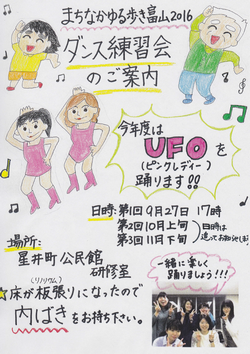 まちなかゆる歩き富山2016
ダンス練習会
のご案内
今年度は
UFOを
(ピンクレディー)
踊ります!!
日時:第1回9月27日 17時
第2回10月上旬
第3回11月下旬
日時は
追ってお知らせします
場所:
星井町公民館
研修室
(リノリウム)
☆床が板張りになったので
内ばきをお持ち下さい。
一緒に楽しく
踊りましょう!!!